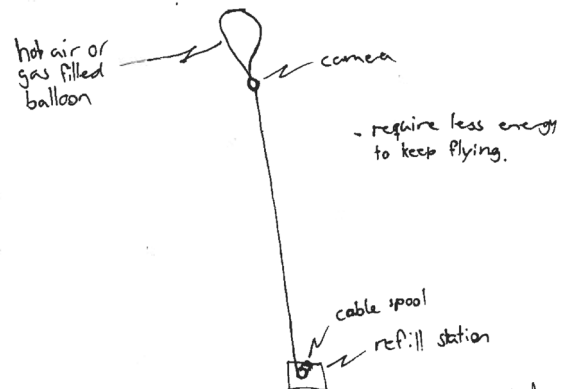 hot air or
gas filled
balloon
camera
- require less energy
to keep flying.
cable spool
refill station